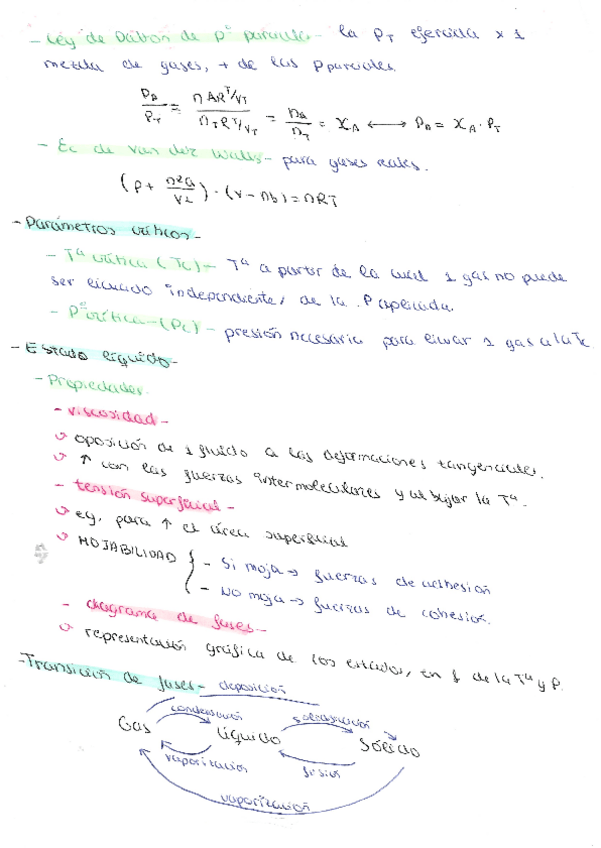 - Ley de Dalton de pº parciales - la PT ejercida x 1
mezcla de gases, + de las Pparciales.
PA/PT = nART/VT / nTRT/VT = nA/nT = XA ⟷ PA = XA · PT
- Ec de van der Walls - para gases reales.
(P + n²a/V²) · (V - nb) = nRT
- Parámetros críticos -
- Tª crítica (Tc) - Tª a partir de la cual 1 gas no puede
ser licuado independiente, de la P aplicada.
- Pº crítica - (Pc) - presión necesaria para licuar 1 gas a la Tc
- Estado líquido -
- Propiedades.
- viscosidad -
oposición de 1 fluido a las deformaciones tangenciales.
↑ con las fuerzas intermoleculares y al bajar la Tª.
- tensión superficial -
para ↑ el área superficial
MOJABILIDAD { - Si moja → fuerzas de adhesión
- No moja → fuerzas de cohesión.
- diagrama de fases -
representación gráfica de los estados, en f de la Tª y P.
- Transición de fases - deposición
condensación solidificación
Gas Líquido Sólido
vaporización fusión
vaporización